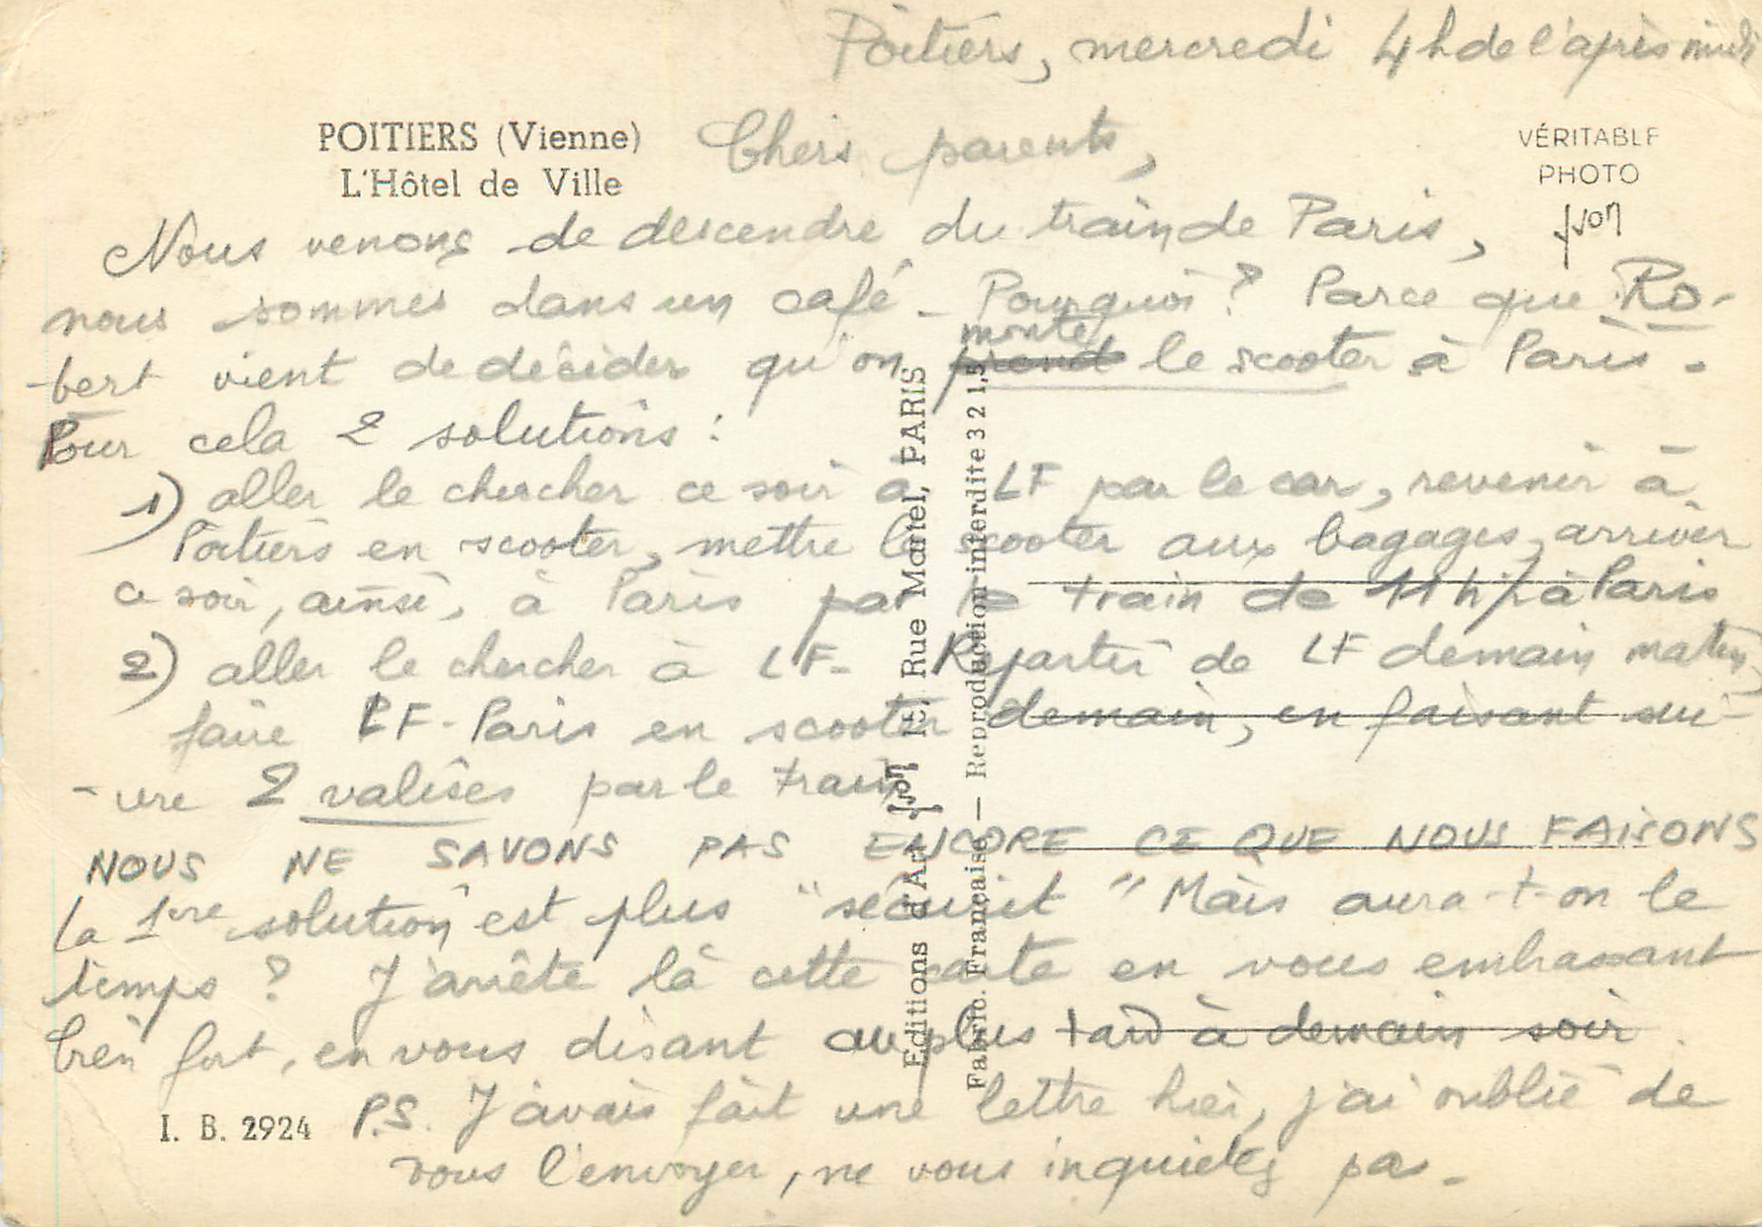 Poitiers, mercredi 4h de l'après midi
POITIERS (Vienne)
L'Hôtel de Ville
VÉRITABLE
PHOTO
yvon
Chers parents,
Nous venons de descendre du train de Paris,
nous sommes dans un café - Pourquoi ? Parce que Ro-
-bert vient de décider qu'on prend monte le scooter à Paris.
Pour cela 2 solutions :
1) aller le chercher ce soir à LF par le car, revenir à
Poitiers en scooter, mettre le scooter aux bagages, arriver
ce soir, ainsi, à Paris par le train de 11h à Paris
2) aller le chercher à LF - Repartir de LF demain matin,
faire LF-Paris en scooter demain, en faisant sui-
-vre 2 valises par le train
NOUS NE SAVONS PAS ENCORE CE QUE NOUS FAISONS
La 1ère solution est plus "sécurit" Mais aura-t-on le
temps ? J'arrête là cette carte en vous embrassant
bien fort, en vous disant au plus tard à demain soir.
P.S. J'avais fait une lettre hier, j'ai oublié de
vous l'envoyer, ne vous inquietez pas -
I. B. 2924
Editions d'Art yvon Rue Martel, PARIS
Fabric. Française — Reproduction interdite 3 2 1,5